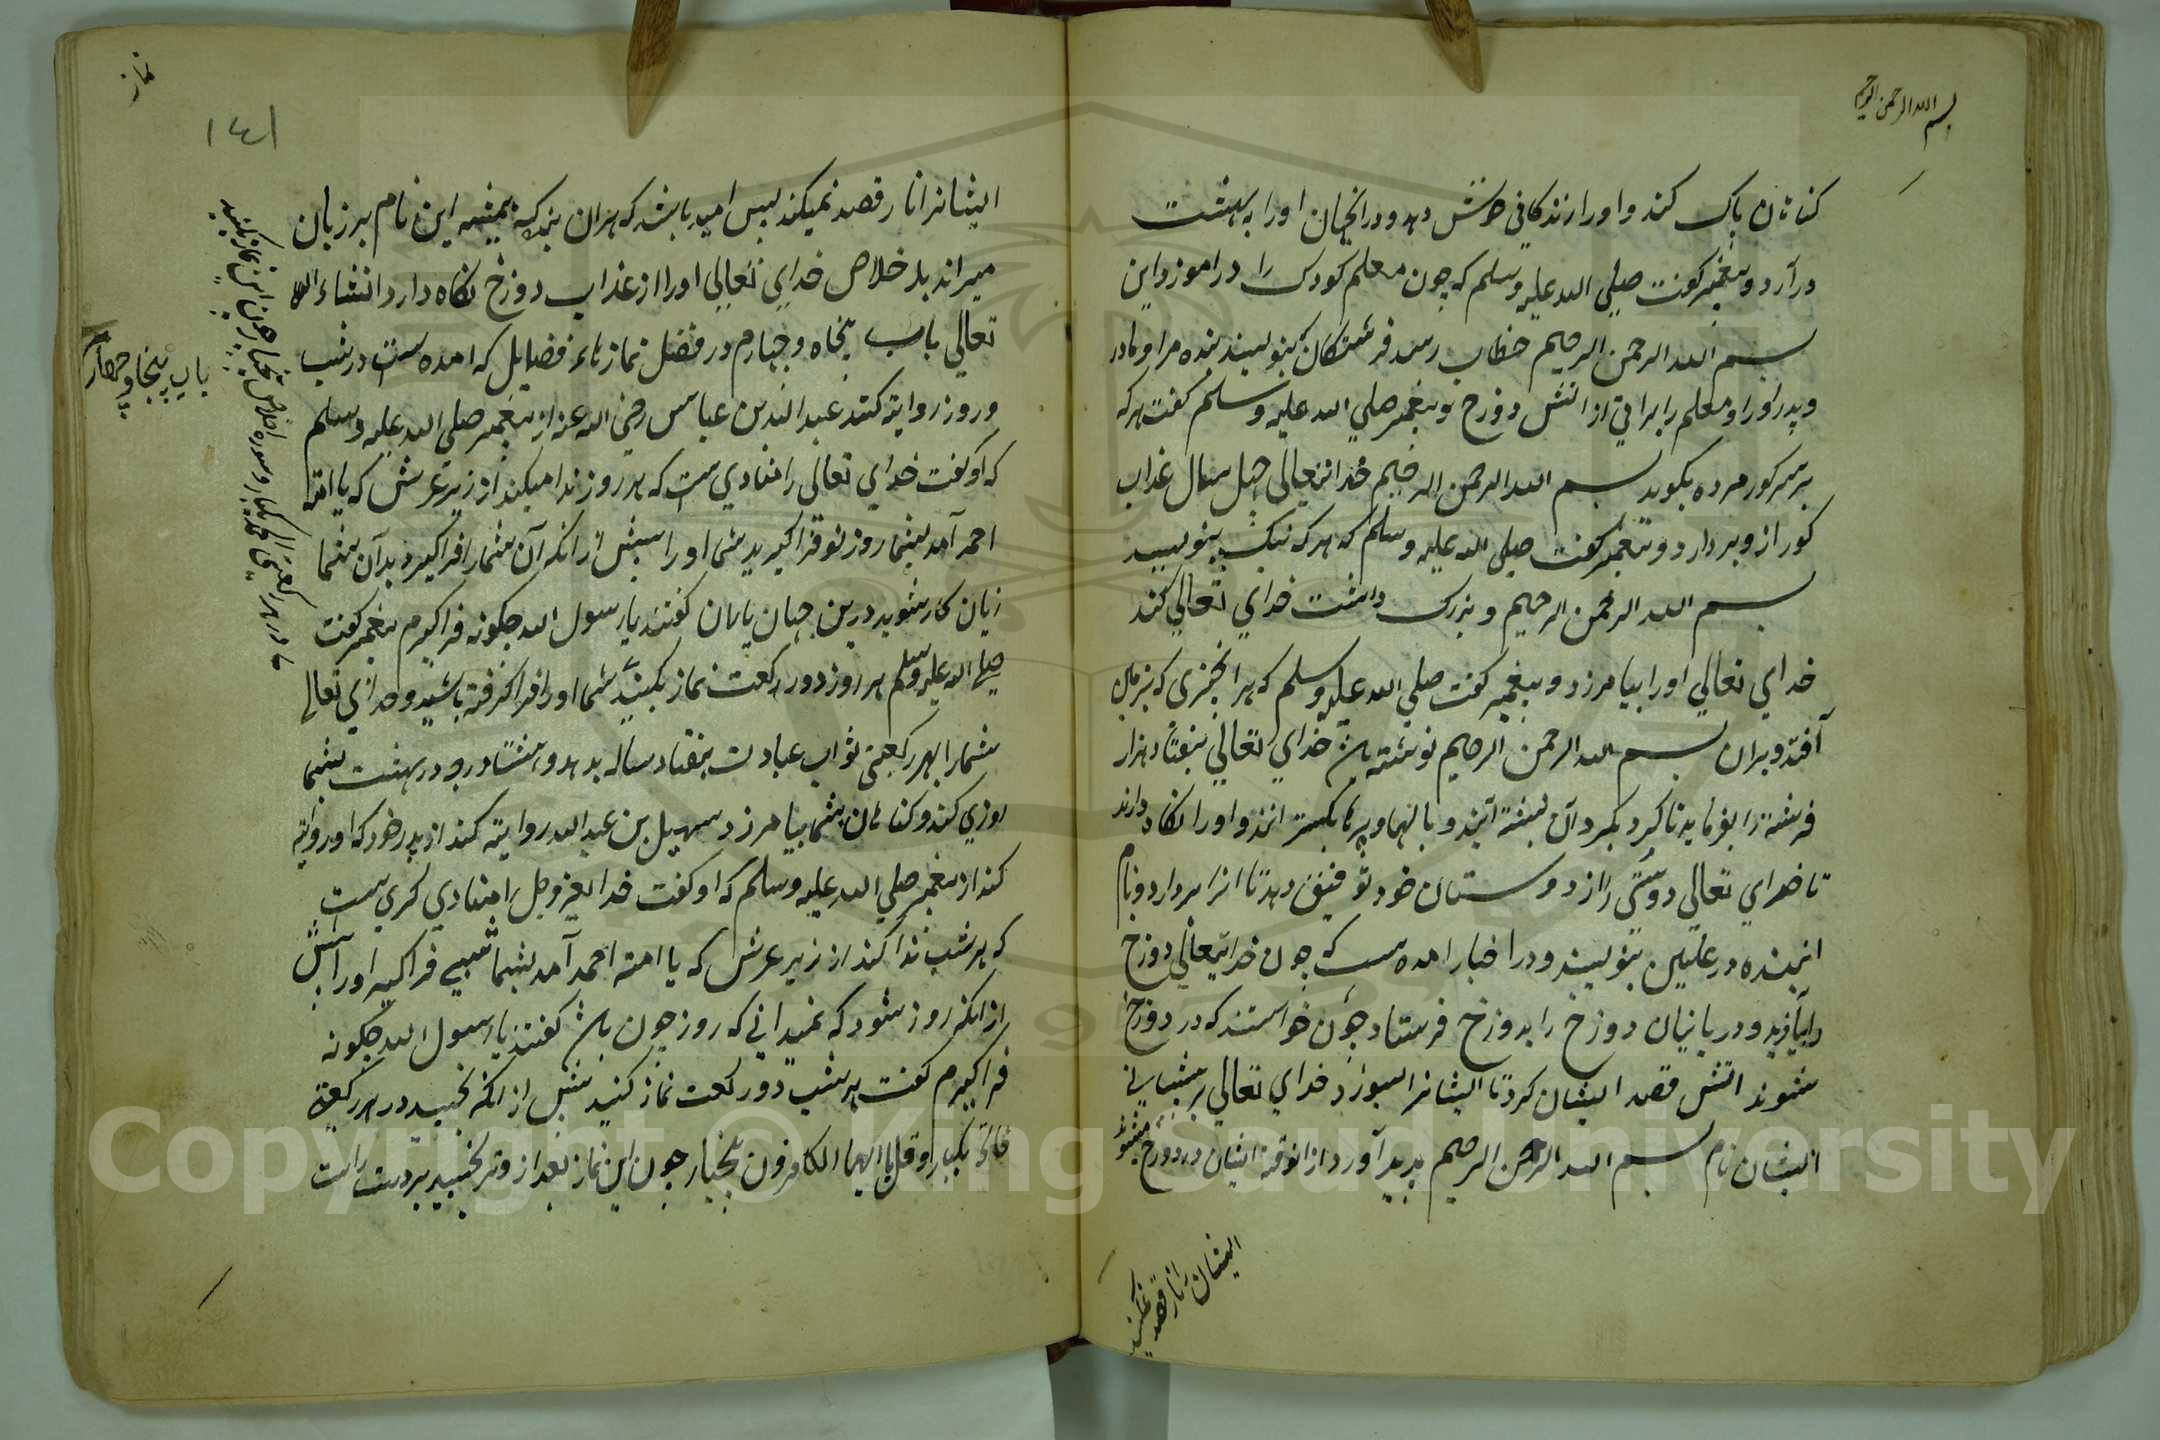 بسم الله الرحمن الرحیم
کناهان پاک کند و اورا زندکانی خوش دهد و در انجهان اورا به بهشت
درآرد و پیغمبر کفت صلی الله علیه وسلم که چون معلم کودک را در اموزد این
بسم الله الرحمن الرحیم خطاب رسد فرشتکان بنویسند بنده مرا و مادر
و پدر اورا و معلم را براتی از اتش دوزخ و پیغمبر صلی الله علیه وسلم کفت هرکه
بر سر کور مرده بکوید بسم الله الرحمن الرحیم خدایتعالی چهل سال عذاب
کور از و بردارد و پیغمبر کفت صلی الله علیه وسلم که هرکه نیک بنویسد
بسم الله الرحمن الرحیم و بزرک داشت خدای تعالی کند
خدای تعالی اورا بیامرزد و پیغمبر کفت صلی الله علیه وسلم که هر انچیزی که بزمین
افتد و بران بسم الله الرحمن الرحیم نوشته باشد خدای تعالی هفتاد هزار
فرشته را بفرماید تا کرد بکرد آن بیشته آیند و بالها و پرها بکسترانند و اورا نکاه دارند
تا خدای تعالی دوستی را از دوستان خود توفیق دهد تا انرا بردارد و نام
انبنده در علیین بنویسند و در اخبار امده ست که چون خدایتعالی دوزخ
را بیافرید و دربانیان دوزخ را بدوزخ فرستاد چون خواستند که در دوزخ
شوند اتش قصد ایشان کرد تا ایشانرا بسوزد خدای تعالی بر پیشانی
ایشان نام بسم الله الرحمن الرحیم پدید آورد از انوقت ایشان در دوزخ میشوند
ایشان را نار قصد نمیکند
نماز
۱٤۱
ایشانرا نار قصد نمیکند پس امید باشد که هران بنده که همیشه این نام بر زبان
میراند بد خلاص خدای تعالی اورا از عذاب دوزخ نکاه دارد انشاء الله
تعالی باب پنجاه و چهارم در فضل نمازهاء فضایل که امده ست در شب
و روز روایة کند عبد الله بن عباس رضی الله عنه از پیغمبر صلی الله علیه وسلم
که او کفت خدای تعالی را منادی ست که هر روز ندا میکند از زیر عرش که یا امة
احمد آمد بشما روز نو فرا کیرید شما اورا پیش از انکه آن شمارا فرا کیرد بدآن شما
زیان کار شوید درین جهان یاران کفتند یا رسول الله چکونه فرا کیرم پیغمبر کفت
صلی الله علیه وسلم هر روز دو رکعت نماز بکنید شما اورا فرا کرفته باشید و خدای تعالی
شمارا بهر رکعتی ثواب عبادت هفتاد ساله بدهد و هشتاد در بهشت بشما
روزی کند و کناهان شما بیامرزد سهیل بن عبد الله روایة کند از پدر خود که او روایة
کند از پیغمبر صلی الله علیه وسلم که او کفت خدا عز وجل را منادی کری ست
که هر شب ندا کند از زیر عرش که یا امة احمد آمد بشما شبی فرا کیرید اورا پیش
از انکه روز شود که نمیدانی که روز چون باشد کفتند یا رسول الله چکونه
فرا کیرم کفت هر شب دو رکعت نماز کنید پیش از انکه بخسپید در هر رکعتی
فاتحه یکبار و قل یا ایها الکافرون پنجبار چون این نماز بعد از وتر بخسپید بر دست راست
باب پنجاه و چهارم
در هر رکعتی الحمد یکبار و سوره اخلاص پنجبار چون این نماز بکنید